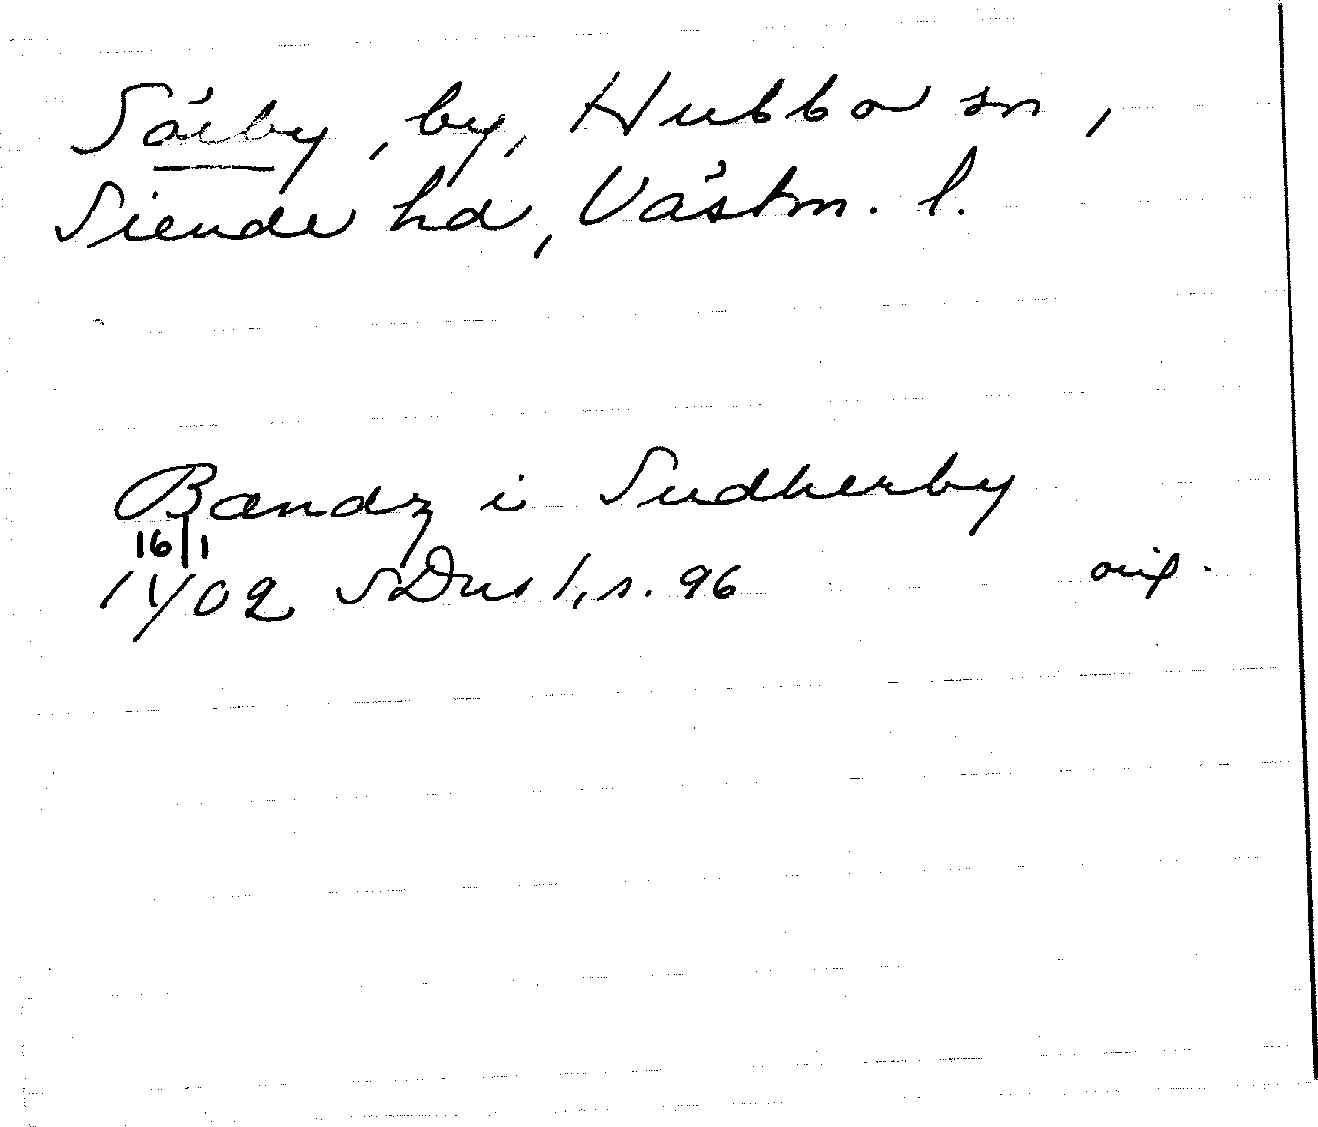 Sörby, by, Hubbo sn,
Siende hd, Västm. l.
Bændz i Sudherby
16/1
1402 SDns 1, s. 96 orig.